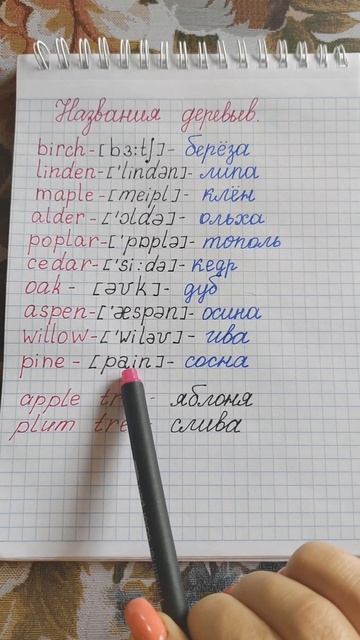 Названия деревьев.
birch-[bɜ:tʃ]- берёза
linden-['lindən]- липа
maple-[meipl]- клён
alder-['ɔldə]- ольха
poplar-['pɒplə]- тополь
cedar-['si:də]- кедр
oak - [əʊk] - дуб
aspen-['æspən]- осина
willow-['wiləʊ]- ива
pine - [pain]- сосна
apple яблоня
plum слива